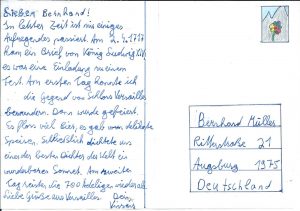 Lieber Bernhard!
In letzter Zeit ist mir einiges
Aufregendes passiert. Am 2.4.1717
kam ein Brief von König Ludwig XIV
es war eine Einladung zu einem
Fest. Am ersten Tag konnte ich
die Gegend von Schloss Versailles
bewundern. Dann wurde gefeiert.
Es floss viel Bier, es gab auch delikate
Speisen. Selbstlich dichtete uns
einer der besten Dichter der Welt ein
wunderbares Sonnet. Am zweiten
Tag reisten die 700 Adeligen wieder ab.
Liebe Grüsse aus Versailles. Dein
Bernhard Müller
Ritterstraße 21
Augsburg 1975
Deutschland